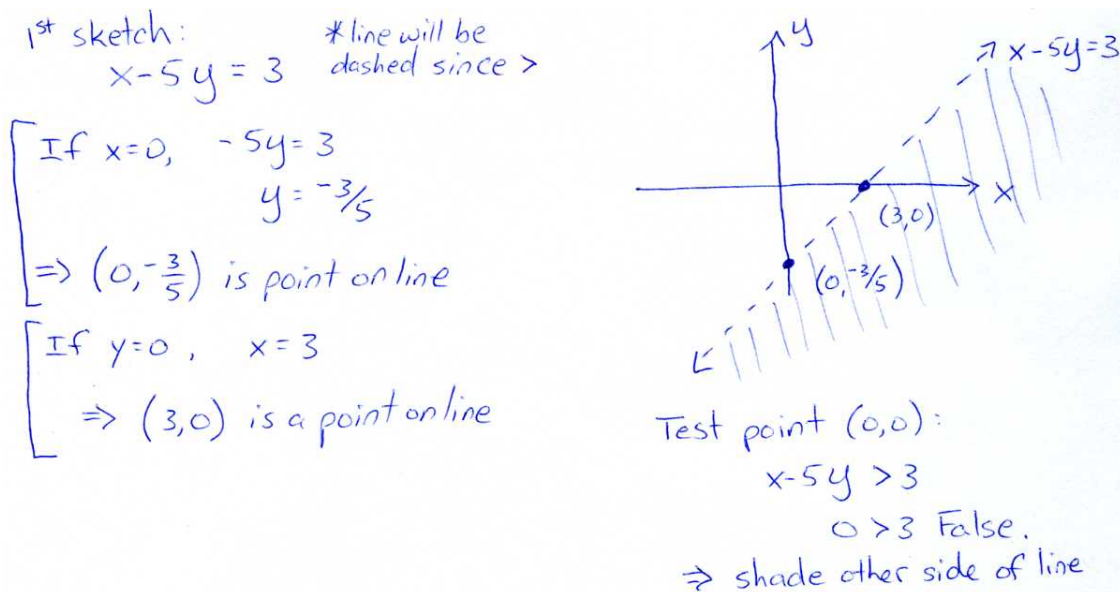 1st sketch:
x-5y = 3
*line will be
dashed since >
If x=0, -5y=3
y = -3/5
=> (0, -3/5) is point on line
If y=0, x=3
=> (3,0) is a point on line
y
x-5y=3
x
(3,0)
(0, -3/5)
Test point (0,0):
x-5y > 3
0 > 3 False.
=> shade other side of line